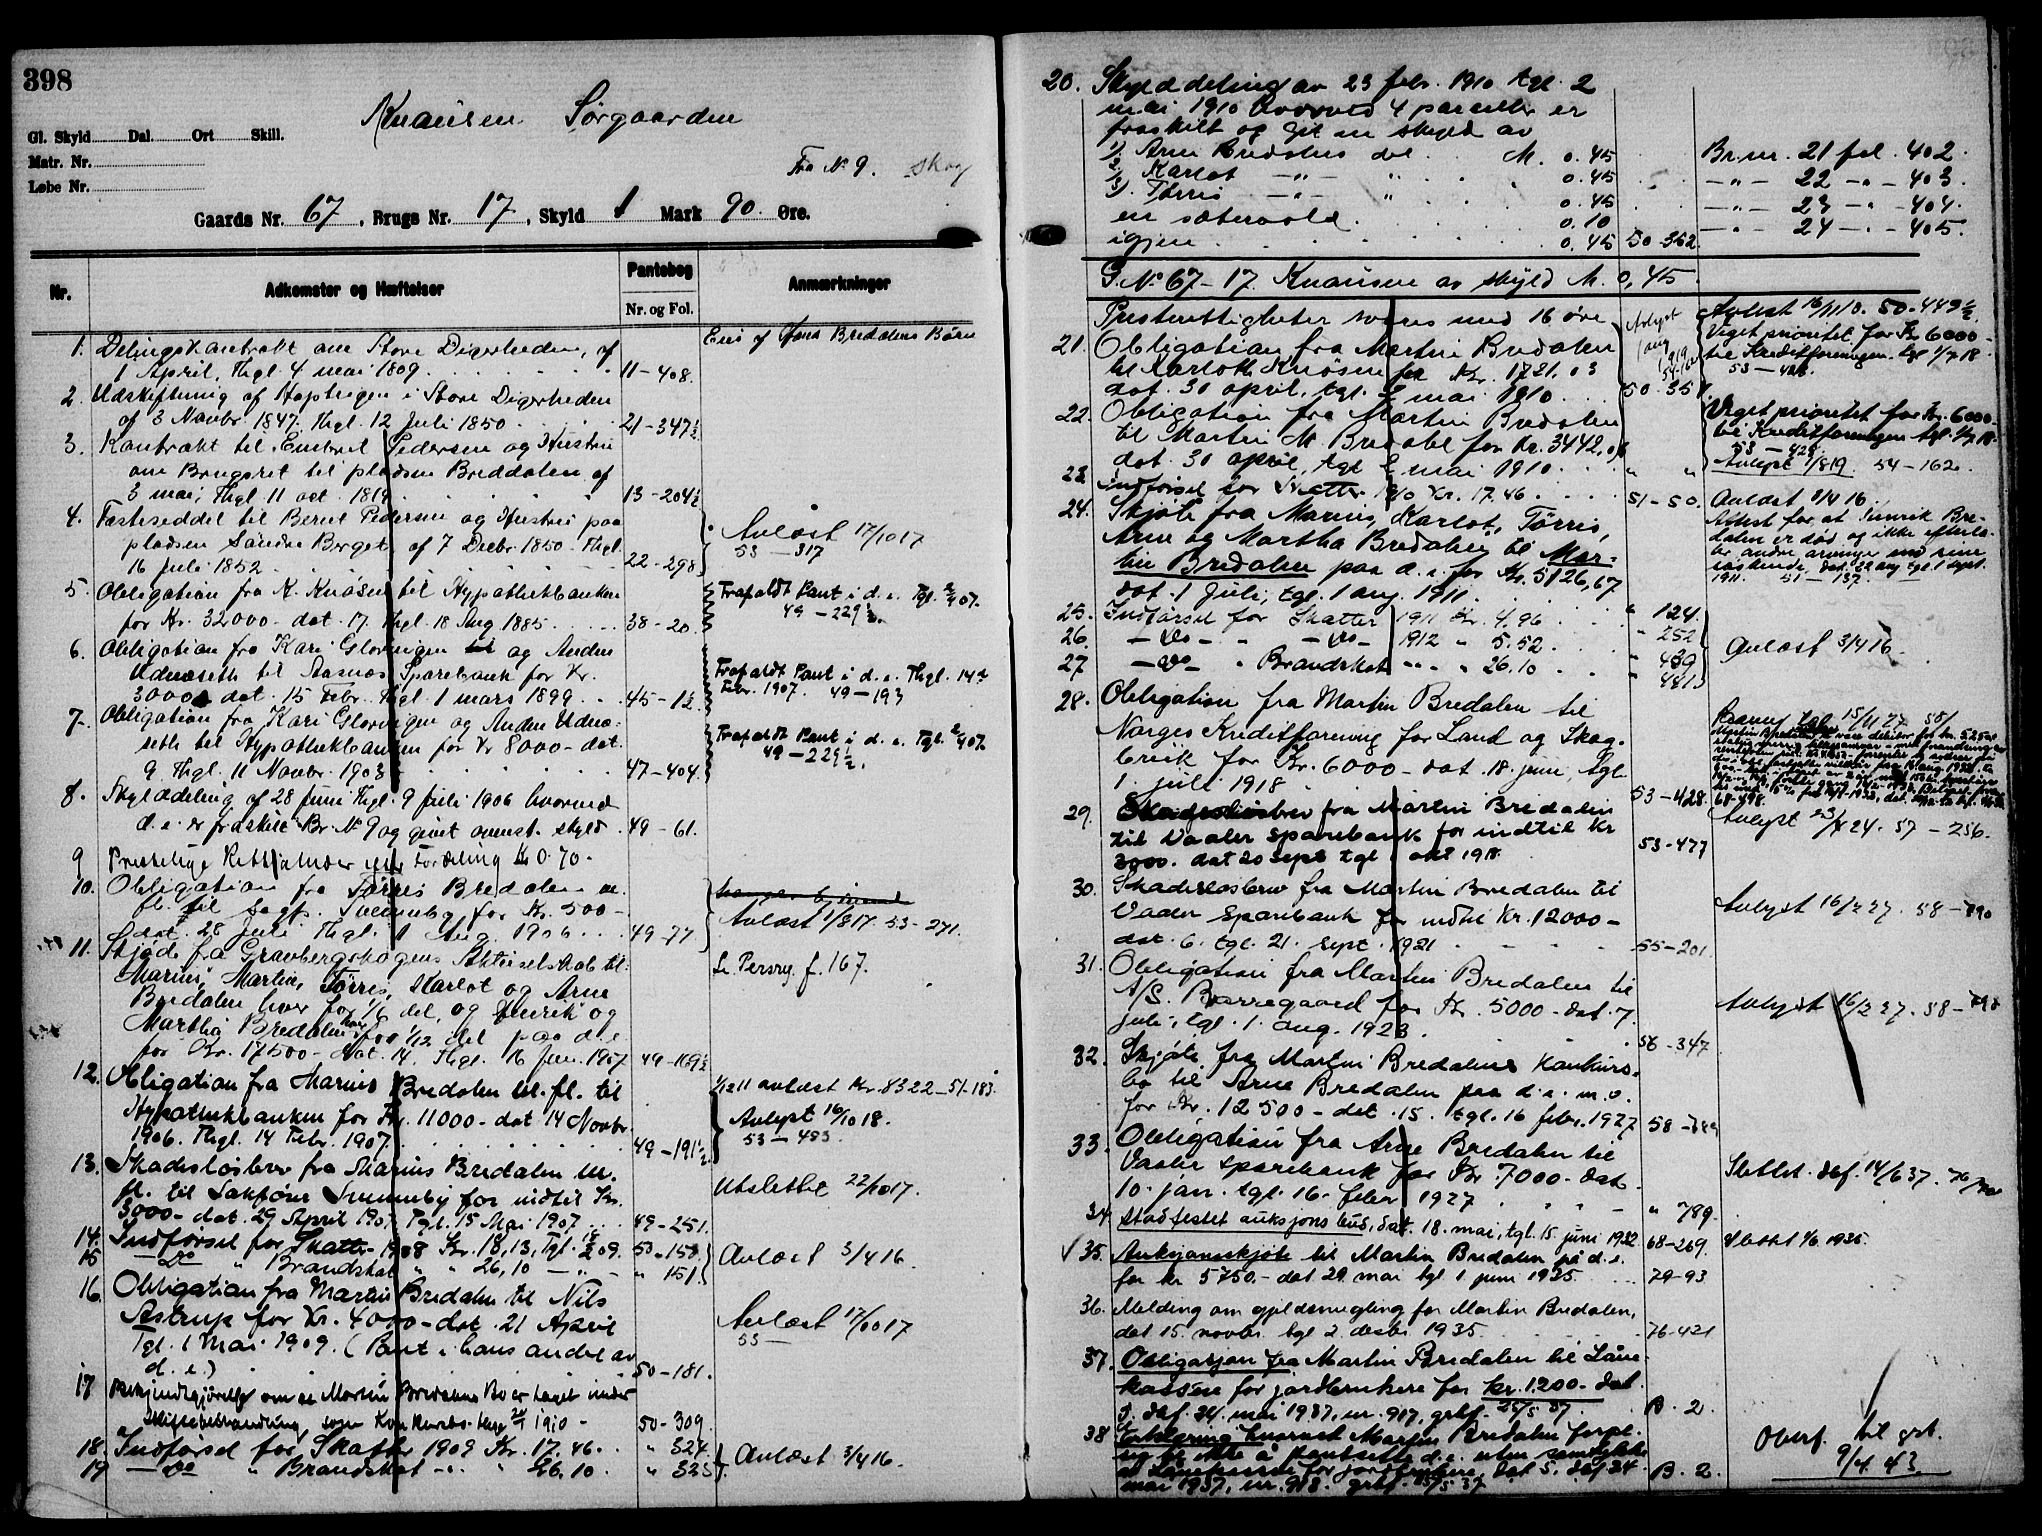 398
Knausen Sørgaarden
Gl. Skyld Dal. Ort Skill.
Matr. Nr.
Løbe Nr.
Fra No 9. skog
Gaards Nr. 67, Brugs Nr. 17, Skyld 1 Mark 90 Øre.
Nr. Adkomster og Hæftelser Pantebog Nr. og Fol. Anmærkninger
Eies af Hans Bredalens Børn
1. Delingskontrakt om Store Digerheden, af
1 April, Thgl. 4 mai 1809. 11-408.
2. Udskiftning af Havningen i Store Digerheden
af 3 Novbr 1847. Thgl. 12 Juli 1850 21-347½
3. Kontrakt til Pedersen og Hustru
om Brugsret til pladsen Breddalen af
3 mai, Thgl 11 oct. 1819 13-204½
4. Fæsteseddel til Bernt Pedersen og Hustru paa
pladsen Søndre Berget af 7 Decbr 1850. Thgl.
16 Juli 1852 22-298
Avlæst 17/10 17
53-317
5. Obligation fra K. Knøsen til Hypothekbanken
for Kr. 32000 - dat. 17. Thgl 18 Aug 1885 38-20.
Frafaldt Pant i d. e. Tgl. 2/4 07.
49-229½.
6. Obligation fra Kari Glorvigen og Anden
Udnæseth til Aasnæs Sparebank for Kr.
3000 dat. 15 Febr. Thgl 1 mars 1899 45-1½
Frafaldt Pant i d. e. Thgl. 14de
Febr. 1907. 49-193
7. Obligation fra Kari Glorvigen og Anden Udnæ-
seth til Hypothekbanken for Kr 8000 - dat.
9. Thgl. 11 Novbr. 1903 47-404.
Frafaldt Pant i d. e. Tgl. 2/4 07.
49-229½.
8. Skylddeling af 28 Juni Thgl. 9 Juli 1906 hvorved
d. e. er fraskilt Br. No 9 og givet ovenst. skyld 49-61.
9 Presteligé Rettigheder efter Fordeling Kr 0.70.
10. Obligation fra Tørris Bredalen m.
fl. til Sagf. for Kr. 500-
dat. 28 Juli Thgl. 1 Aug 1906 49-77
Avlæst 1/8 17. 53-271.
11. Skjøde fra Gravbergskogens Aktieselskab til
Marius, Martin, Tørris, Karlot og Arne
Bredalen hver for 1/6 del, og Henrik og
Martha Bredalen hver for 1/12 del paa d. e.
for Kr. 17500 - dat. 14. Thgl. 16 Jan. 1907 49-169½
Se Persrg. f. 167.
12. Obligation fra Marius Bredalen m. fl. til
Hypothekbanken for Kr. 11000 - dat 14 Novbr.
1906. Thgl. 14 Febr. 1907 49-191½
1/12 11 avlæst Kr. 8322 - 51-183.
Avlyst 16/10 18.
53-483.
13. Skadesløsbrev fra Marius Bredalen m.
fl. til Sakfører for indtil Kr.
3000 - dat. 29 April 1907 Tgl. 15 Mai 1907 49-251.
Utslettet 22/10 17.
14. Indførsel for Skatter 1908 Kr. 18,13, Tgl. 09. 50-150
15 - Do " Brandskat " " 26,10 - " - " 151
Avlæst 3/4 16.
16. Obligation fra Martin Bredalen til Nils
Astrup for Kr. 4000 - dat. 21 April
Tgl. 1 Mai 1909. (Pant i hans andel av
d. e.) 50-181.
Avlæst 17/10 17
53-
17 Bekjendtgjørelse om at Martin Bredalens Bo er taget under
Skiftebehandling som Konkursbo - 1910 - 50-309.
18. Indførsel for Skatter 1909 Kr. 17.46. " 324
19 - Do " Brandskat " " 26.10. " 325
Avlæst 3/4 16.
20. Skylddeling av 23 febr. 1910 tgl. 2
mai 1910 hvorved 4 parceller er
fraskilt og git en skyld av
1/ Arne Bredalens del. M. 0.45 Br.nr. 21 fol. 402.
2/ Karlot -"- " 0.45 -"- 22 -"- 403.
3/ Tørris -"- " 0.45 -"- 23 -"- 404.
en sætervold. 0.10 -"- 24 -"- 405.
igjen 0.45 50-352
G. No 67-17. Knausen av skyld M. 0,45.
Presterettigheter svares med 16 øre
21. Obligation fra Martin Bredalen
til Karlot Knøsen for Kr. 1721.03
dat. 30 april, tgl. 2 mai 1910. 50-351.
Avlyst 16/11 10. 50-449½.
Veget prioritet for Kr 6000-
til Kreditforeningen. tgl 1/7 18.
53-428.
22. Obligation fra Martin Bredalen
til Martin M. Bredalen for Kr. 3442,06
dat. 30 april, tgl 2 mai 1910. " "
Veget prioritet for Kr. 6000-
til Kreditforeningen tgl. 1/7 18-
53-428.
Avlyst 1/8 19. 54-162.
23. Indførsel for Skatter 1910 Kr. 17.46. 51-50.
Avlæst 3/4 16.
24. Skjøte fra Marius, Karlot, Tørris,
Arne og Martha Bredalen til Mar-
tin Bredalen paa d. e. for Kr. 5126,67
dat. 1 Juli, tgl. 1 aug. 1911. " 124.
Attest for at Henrik Bre-
dalen er død og ikke efterla-
ter andre arvinger end sine
søskende, dat. 22 aug tgl. 1 sept.
1911. 51-137.
25. Indførsel for Skatter 1911 Kr. 4.96.
26. -Do- " -Do- 1912 " 5.52. " 252
27 -Do- " Brandskat " " " 26.10 " 439
" 441
Avlæst 3/4 16.
28. Obligation fra Martin Bredalen til
Norges Kreditforening for Land og Skog-
bruk for Kr. 6000 - dat. 18. juni, tgl.
1. juli 1918. 53-428.
29. Skadesløsbrev fra Martin Bredalen
til Vaaler Sparebank for indtil Kr
3000. dat 20 sept tgl 1 okt 1918. 53-477
Avlyst 23/4 24. 57-256.
30. Skadesløsbrev fra Martin Bredalen til
Vaaler Sparebank for indtil Kr. 12000-
dat. 6. tgl. 21. sept. 1921 55-201.
Avlyst 16/2 27. 58-790
31. Obligation fra Martin Bredalen til
A/S. Borregaard for Kr. 5000 - dat. 7.
juli, tgl. 1. aug. 1923. 56-347
Avlyst 16/2 27. 58-790
32. Skjøte fra Martin Bredalens Konkurs-
bo til Arne Bredalen paa d. e. m. v.
for Kr. 12500 - dat. 15. tgl. 16 febr. 1927 58-789
33. Obligation fra Arne Bredalen til
Vaaler Sparebank for Kr. 7000 - dat.
10. jan. tgl. 16. febr 1927 " 789.
Slettet. dbf. 14/6 37.
34. Stadfestet auksjonsbud, dat. 18. mai, tgl. 15. juni 1932. 68-269.
Slettet 1/6 1935.
35. Auksjonsskjøte til Martin Bredalen på d. e.
for kr 5750.- dat 29. mai tgl 1 juni 1935. 74-93
36. Melding om gjeldsmegling for Martin Bredalen,
dat 15. novbr. tgl 2. desbr. 1935. 76-421
37. Obligasjon fra Martin Bredalen til Låne-
kassen for jordbrukere for kr. 1200 - dat
3. dbf. 24. mai 1937, nr. 917, grbf. 25/5 37 B. 2.
38 Erklæring hvorved Martin Bredalen forpl.
sig til ikke å pantsette d. e. uten samtykke
av Lånekassen for jordbrukere, dat 5. dbf 24.
mai 1937, nr. 918. grbf. 25/5 37 B. 2.
Overf. til grb.
9/4. 43.